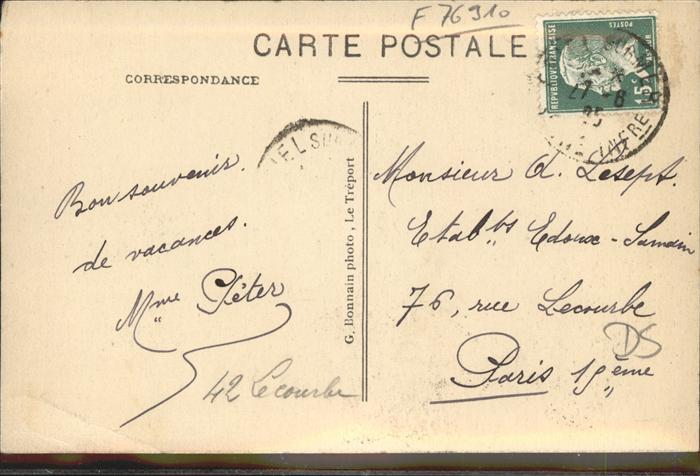 F 76910
CARTE POSTALE
CORRESPONDANCE
REPUBLIQUE FRANÇAISE
POSTES
15c
27 - 8
25
INFRE
IEL SUR
Bon souvenir.
de vacances.
Mme Péter
42 Lecourbe
G. Bonnain photo, Le Tréport
Monsieur A. Lesept.
Etabts Edoux-Samain
76, rue Lecourbe
DS
Paris 15ème